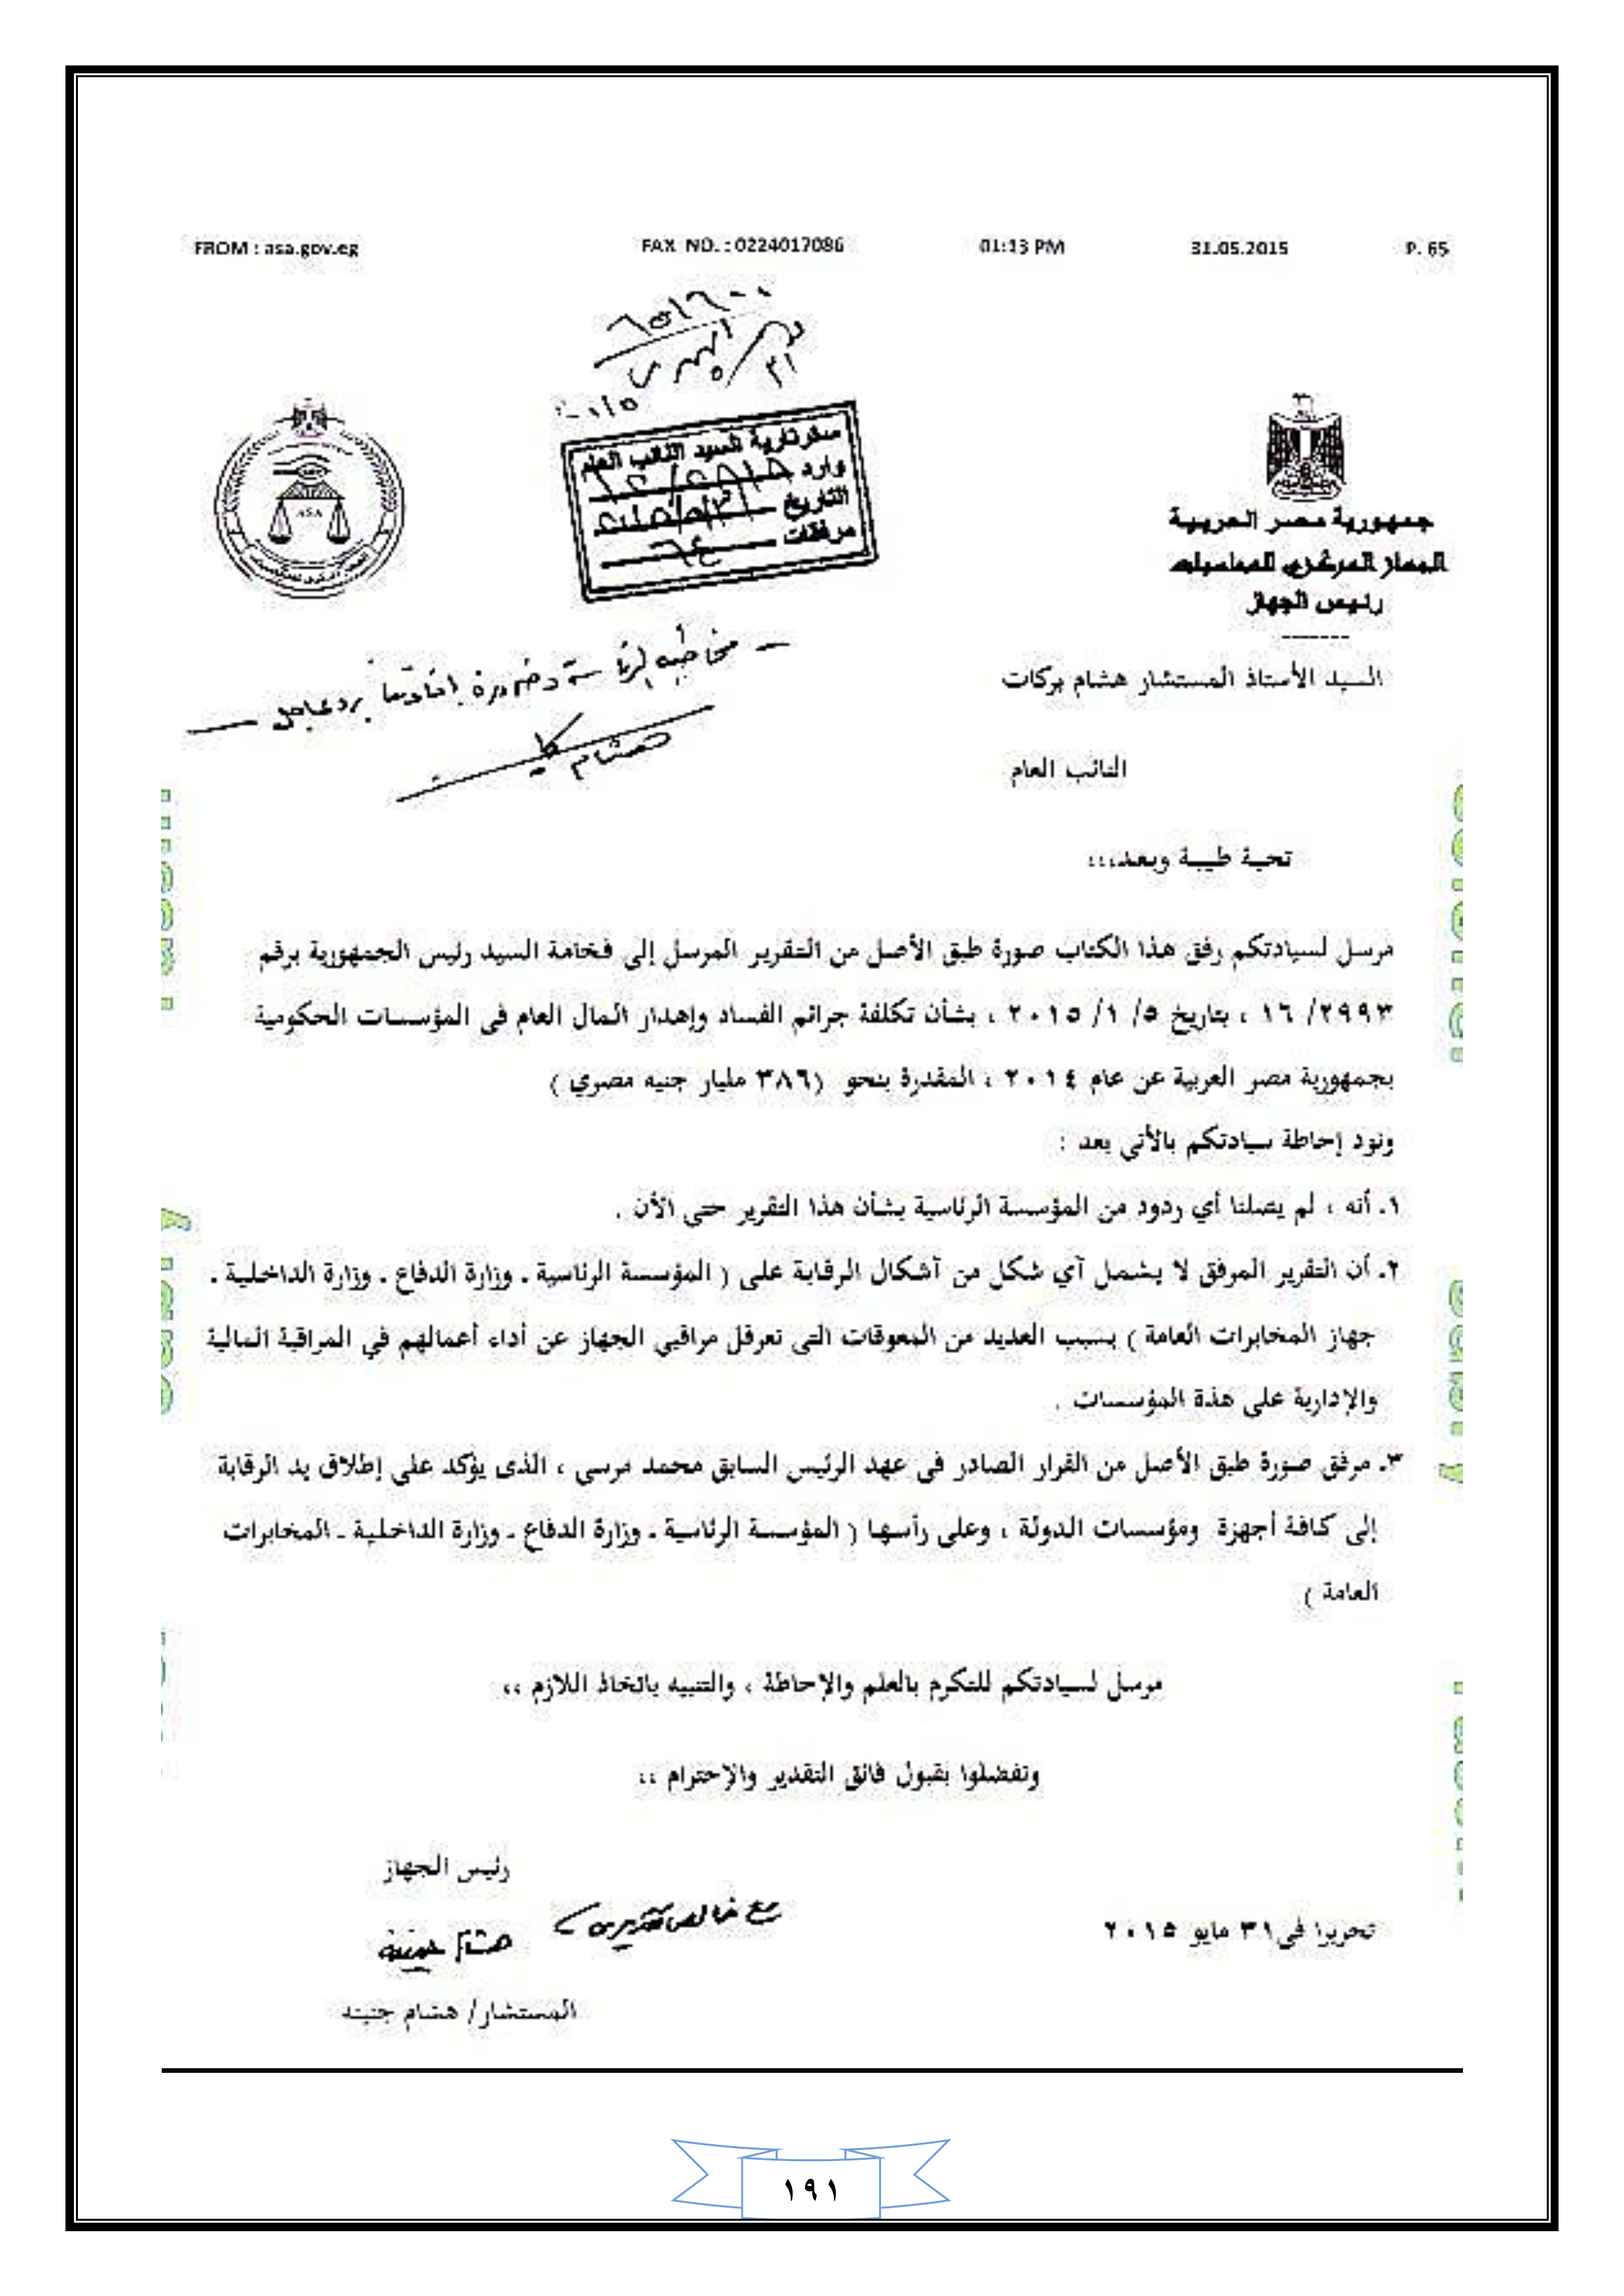 FROM : asa.gov.eg FAX NO. : 0224017086 01:13 PM 31.05.2015 P. 65
سكرتارية السيد النائب العام
وارد
التاريخ
مرفقات ٦٤
ASA
جمهورية مصر العربية
الجهاز المركزي للمحاسبات
رئيس الجهاز
السيد الأستاذ المستشار هشام بركات
النائب العام
تحية طيبة وبعد،،،
مرسل لسيادتكم رفق هذا الكتاب صورة طبق الأصل من التقرير المرسل إلى فخامة السيد رئيس الجمهورية برقم
٢٩٩٣/ ١٦ ، بتاريخ ٥/ ١/ ٢٠١٥ ، بشأن تكلفة جرائم الفساد وإهدار المال العام فى المؤسسات الحكومية
بجمهورية مصر العربية عن عام ٢٠١٤ ، المقدرة بنحو (٣٨٦ مليار جنيه مصري )
ونود إحاطة سيادتكم بالأتى بعد :
١. أنه ، لم يصلنا أي ردود من المؤسسة الرئاسية بشأن هذا التقرير حتى الأن .
٢. أن التقرير المرفق لا يشمل آي شكل من آشكال الرقابة على ( المؤسسة الرئاسية . وزارة الدفاع . وزارة الداخلية .
جهاز المخابرات العامة ) بسبب العديد من المعوقات التى تعرقل مراقبي الجهاز عن أداء أعمالهم في المراقبة المالية
والإدارية على هذة المؤسسات .
٣. مرفق صورة طبق الأصل من القرار الصادر فى عهد الرئيس السابق محمد مرسي ، الذى يؤكد على إطلاق يد الرقابة
إلى كافة أجهزة ومؤسسات الدولة ، وعلى رأسها ( المؤسسة الرئاسية ـ وزارة الدفاع ـ وزارة الداخلية ـ المخابرات
العامة )
مرسل لسيادتكم للتكرم بالعلم والإحاطة ، والتنبيه باتخاذ اللازم ،،
وتفضلوا بقبول فائق التقدير والإحترام ،،
رئيس الجهاز
مع خالص تقديرى
هشام جنينة
تحريرا فى ٣١ مايو ٢٠١٥
المستشار/ هشام جنينه
١٩١